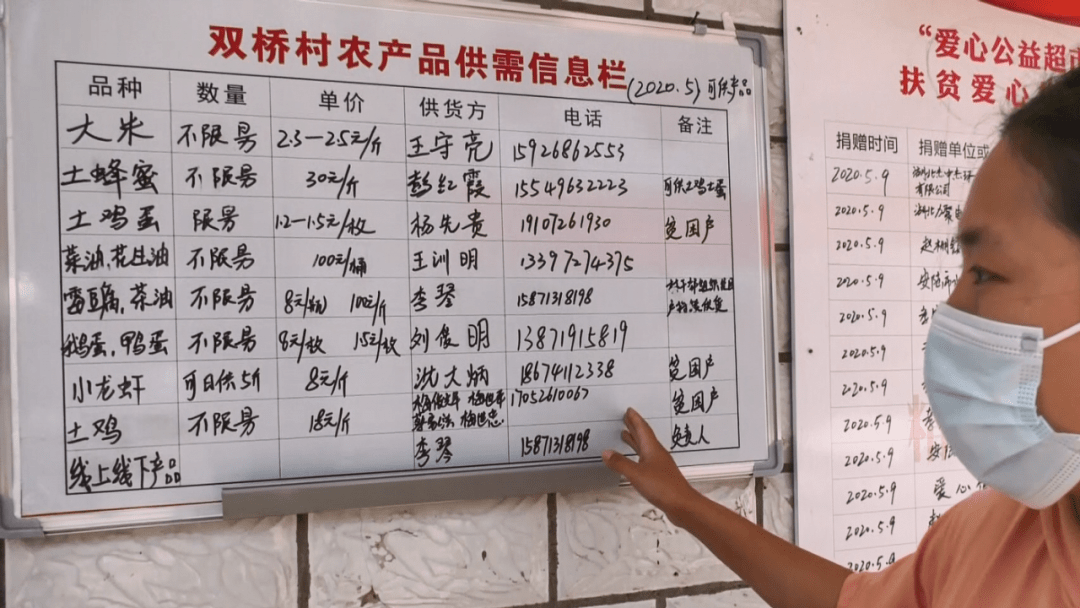 双桥村农产品供需信息栏 (2020.5) 可供产品
品种 数量 单价 供货方 电话 备注
大米 不限量 2.3—2.5元/斤 王守亮 15926862553
土蜂蜜 不限量 30元/斤 彭红霞 15549632223 可供土鸡土蛋
土鸡蛋 限量 1.2—1.5元/枚 杨先贵 19107261930 贫困户
菜油、花生油 不限量 100元/桶 王训明 13397274375
霉豆腐、茶油 不限量 8元/瓶 100元/斤 李琴 15871318198
鹅蛋、鸭蛋 不限量 8元/枚 1.5元/枚 刘俊明 13871915819
小龙虾 可日供5斤 8元/斤 沈大炳 18674112338 贫困户
土鸡 不限量 18元/斤 17052610067 贫困户
线上线下产品 李琴 15871318198 负责人
“爱心公益超市
扶贫爱心
捐赠时间 捐赠单位或
2020.5.9
有限公司
2020.5.9
2020.5.9
2020.5.9
2020.5.9
2020.5.9
2020.5.9
2020.5.9
2020.5.9
2020.5.9 爱心
2020.5.9
2020.5.9